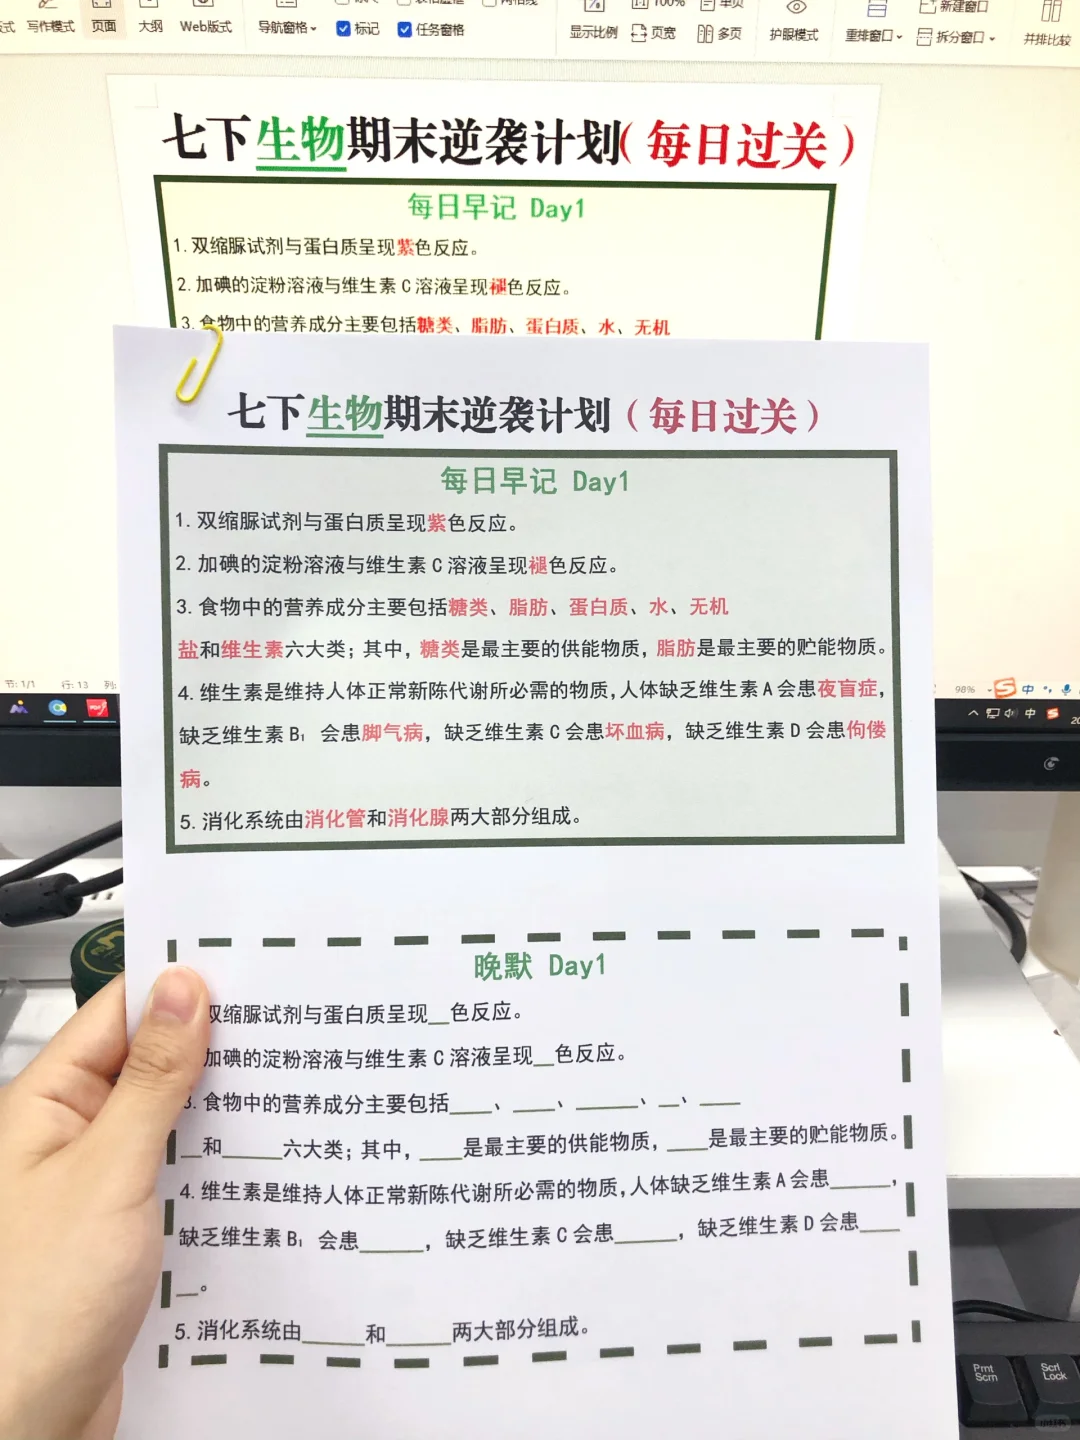 写作模式 页面 大纲 Web版式 导航窗格 标记 任务窗格 显示比例 页宽 多页 护眼模式 重排窗口 拆分窗口 并排比较
100% 单页 新建窗口
七下生物期末逆袭计划(每日过关)
每日早记 Day1
1.双缩脲试剂与蛋白质呈现紫色反应。
2.加碘的淀粉溶液与维生素C溶液呈现褪色反应。
3.食物中的营养成分主要包括糖类、脂肪、蛋白质、水、无机
七下生物期末逆袭计划(每日过关)
每日早记 Day1
1.双缩脲试剂与蛋白质呈现紫色反应。
2.加碘的淀粉溶液与维生素C溶液呈现褪色反应。
3.食物中的营养成分主要包括糖类、脂肪、蛋白质、水、无机
盐和维生素六大类;其中,糖类是最主要的供能物质,脂肪是最主要的贮能物质。
4.维生素是维持人体正常新陈代谢所必需的物质,人体缺乏维生素A会患夜盲症,
缺乏维生素B₁ 会患脚气病,缺乏维生素C会患坏血病,缺乏维生素D会患佝偻
病。
5.消化系统由消化管和消化腺两大部分组成。
晚默 Day1
双缩脲试剂与蛋白质呈现__色反应。
加碘的淀粉溶液与维生素C溶液呈现__色反应。
3.食物中的营养成分主要包括____、____、______、__、____
__和______六大类;其中,____是最主要的供能物质,____是最主要的贮能物质。
4.维生素是维持人体正常新陈代谢所必需的物质,人体缺乏维生素A会患______,
缺乏维生素B₁ 会患______,缺乏维生素C会患______,缺乏维生素D会患____
__。
5.消化系统由______和______两大部分组成。
节:1/1 行:13 列:
98% 中
中
Prnt Scrn
Scrl Lock